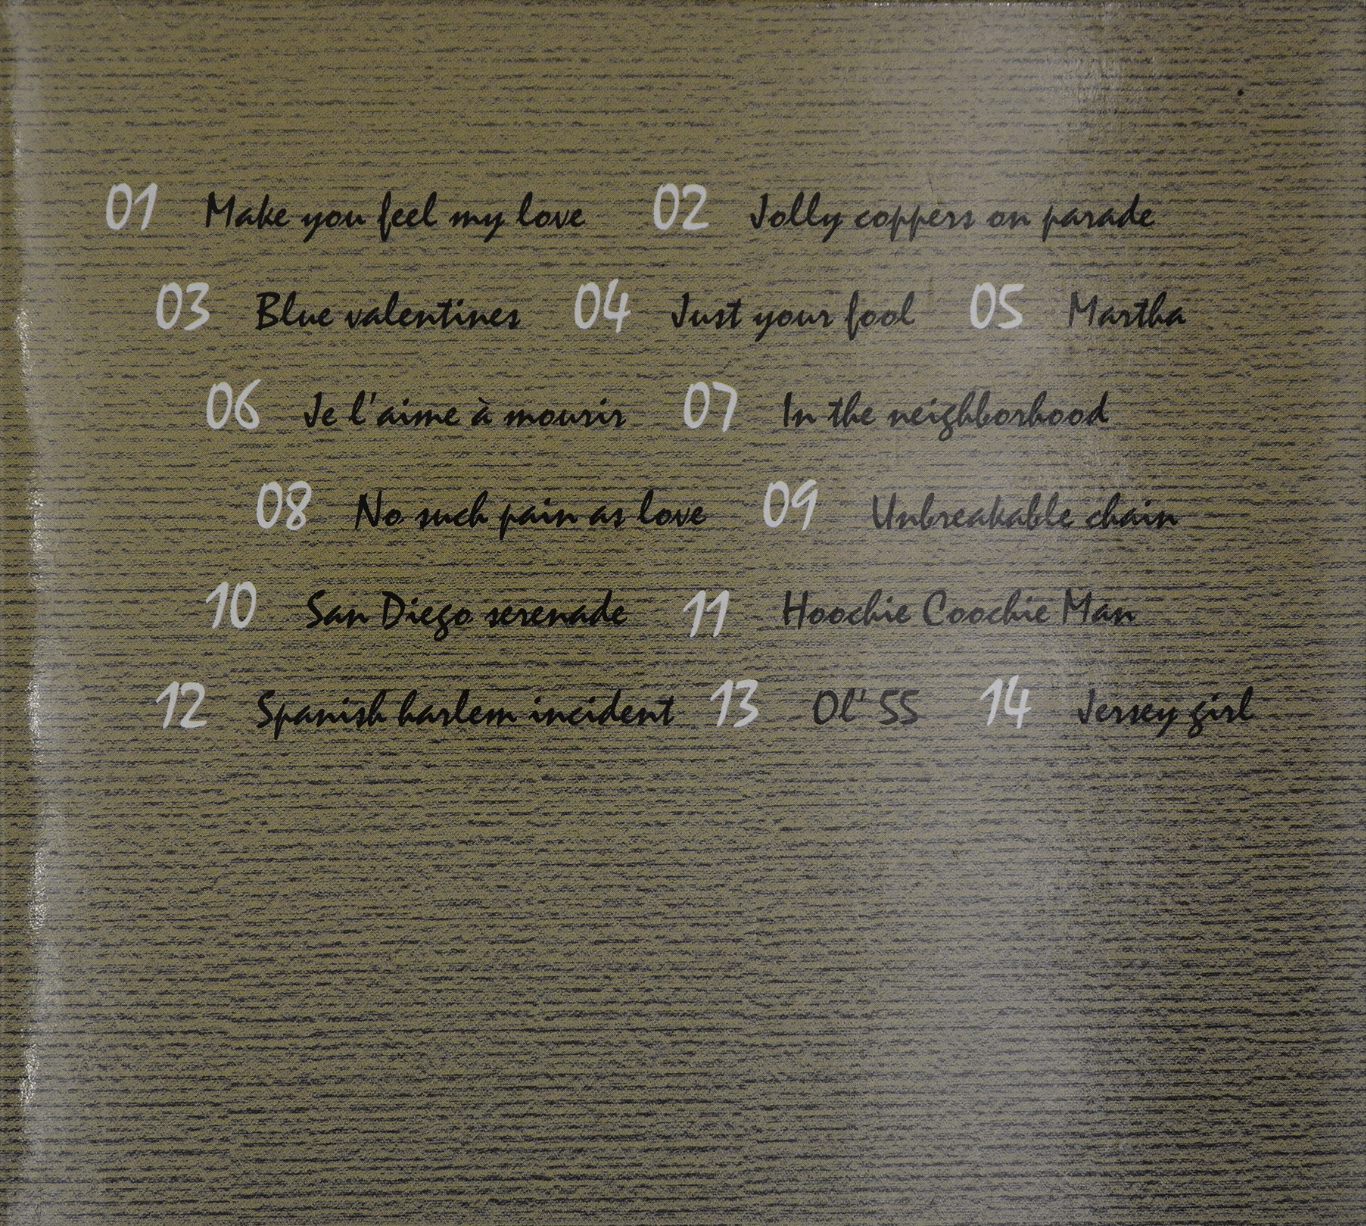 01 Make you feel my love 02 Jolly coppers on parade
03 Blue valentines 04 Just your fool 05 Martha
06 Je l'aime à mourir 07 In the neighborhood
08 No such pain as love 09 Unbreakable chain
10 San Diego serenade 11 Hoochie Coochie Man
12 Spanish harlem incident 13 Ol' 55 14 Jersey girl